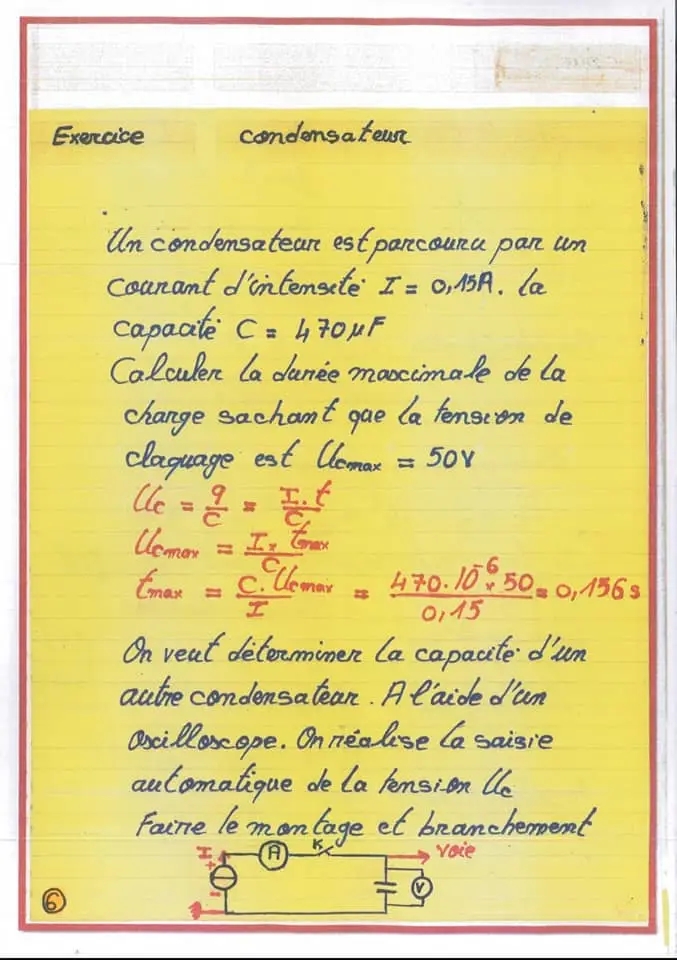 Exercice condensateur
Un condensateur est parcouru par un
courant d'intensité I = 0,15A. la
capacité C = 470µF
Calculer la durée maximale de la
charge sachant que la tension de
claquage est Ucmax = 50V
Uc = q/C = I.t/C
Ucmax = I x tmax/C
tmax = C.Ucmax/I = 470.10^-6 x 50/0,15 = 0,156s
On veut déterminer la capacité d'un
autre condensateur. A l'aide d'un
Oscilloscope. On réalise la saisie
automatique de la tension Uc
Faire le montage et branchement
I A K voie
+
- V
6